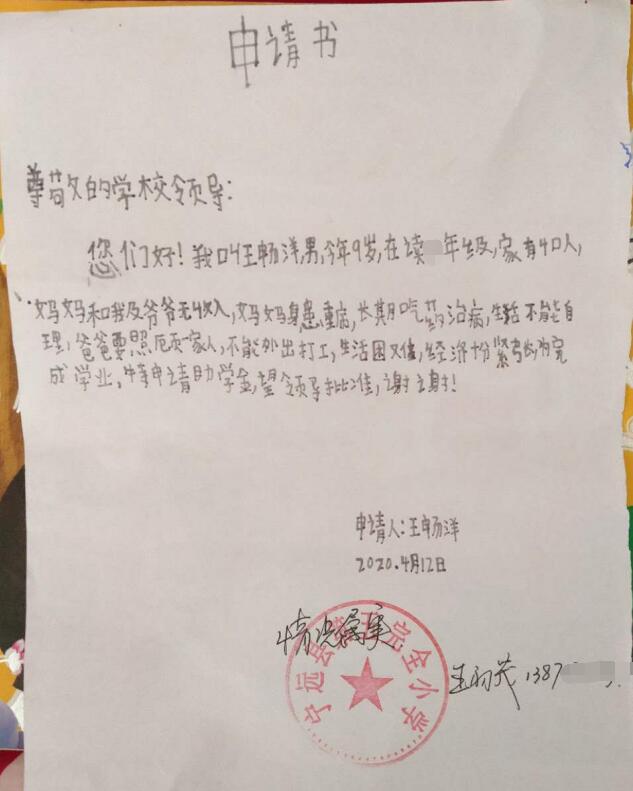 申请书
尊敬的学校领导:
您们好!我叫王畅洋,男,今年9岁,在读年级,家有4口人,
妈妈和我及爷爷无收入,妈妈身患重病,长期吃药治病,生活不能自
理,爸爸要照顾家人,不能外出打工,生活困难,经济十分紧张,为完
成学业,特申请助学金,望领导批准,谢谢!
申请人:王畅洋
2020.4月12日
情况属实
宁远县完全小学
1387